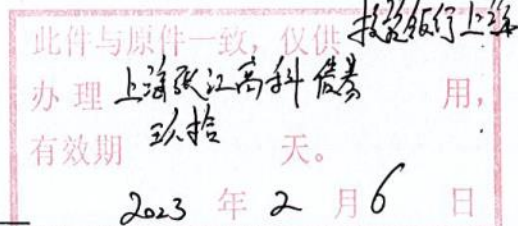 此件与原件一致，仅供投资银行上海
办理上海张江高科债券用，
有效期玖拾天。
2023年2月6日